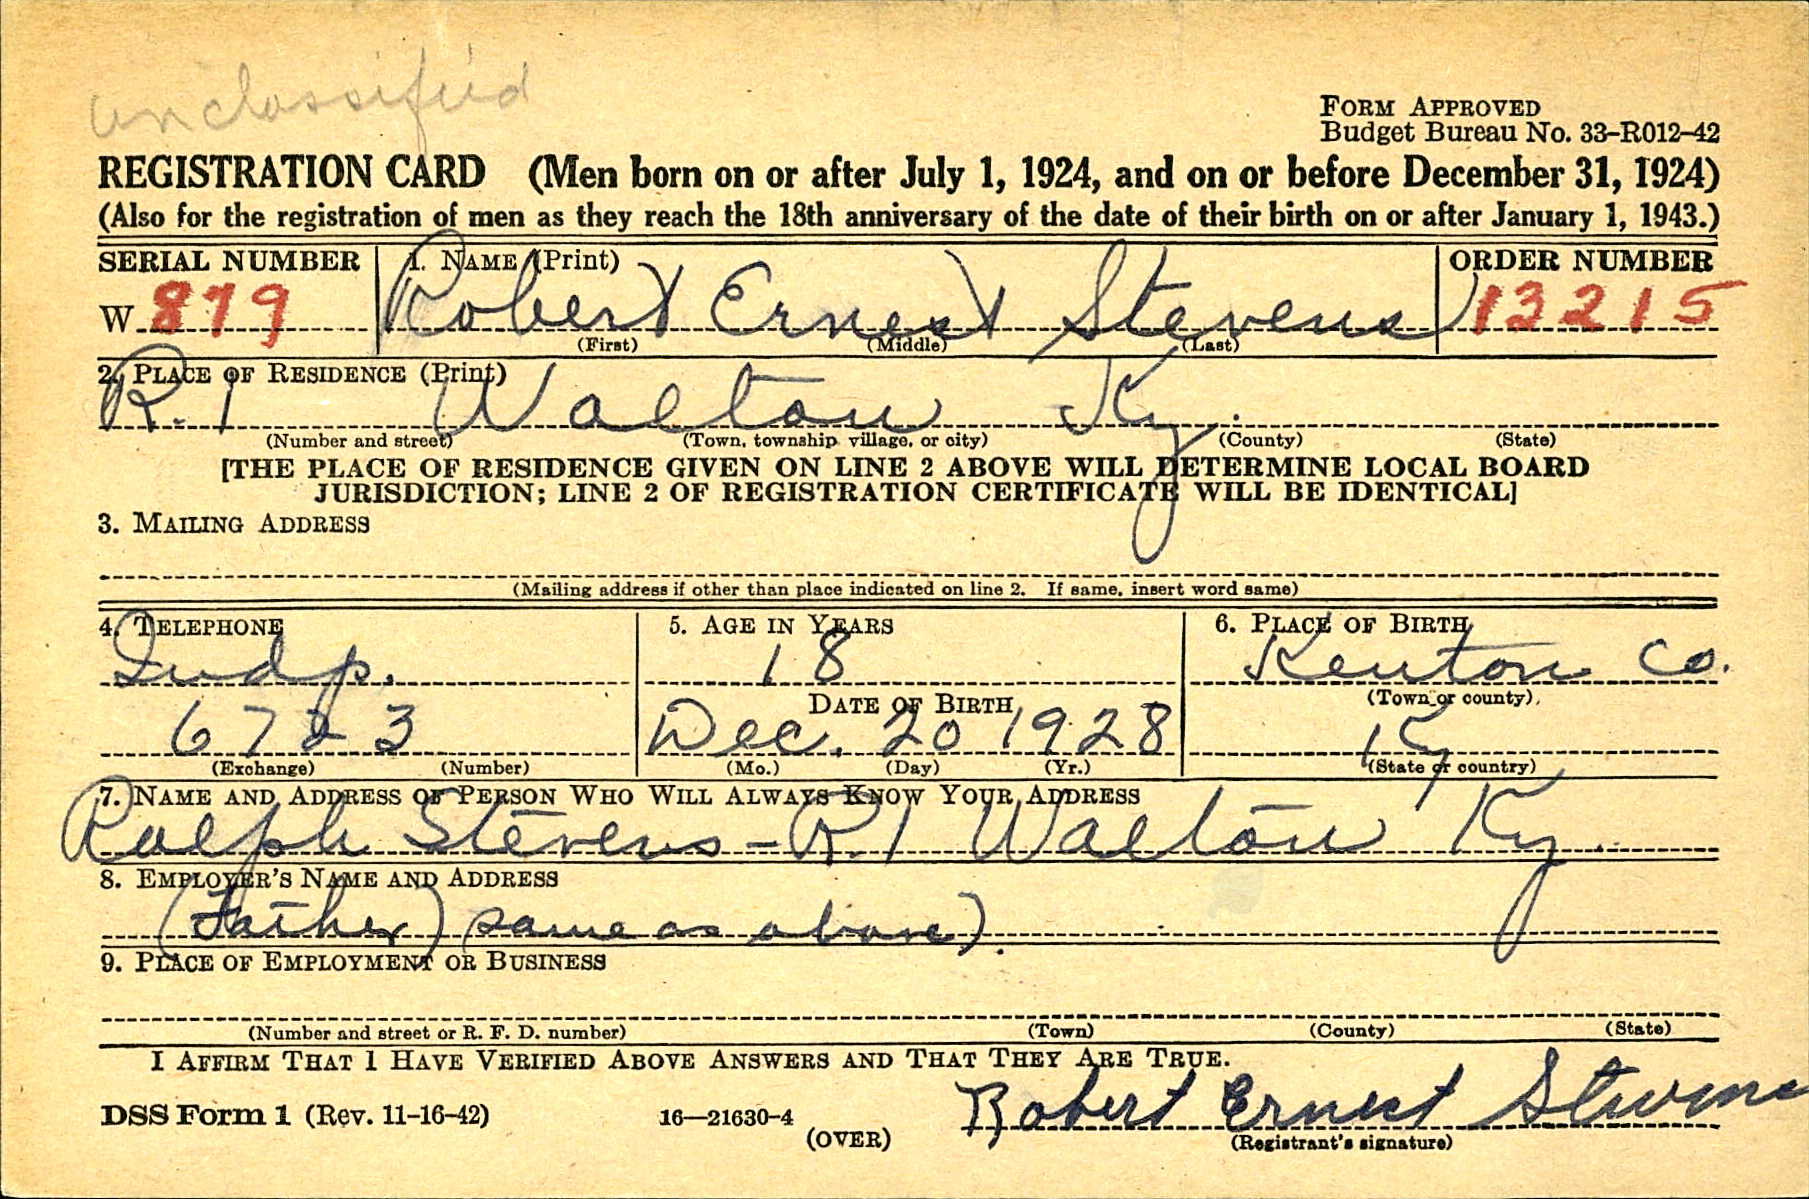 unclassified
FORM APPROVED
Budget Bureau No. 33–R012–42
REGISTRATION CARD (Men born on or after July 1, 1924, and on or before December 31, 1924)
(Also for the registration of men as they reach the 18th anniversary of the date of their birth on or after January 1, 1943.)
SERIAL NUMBER 1. NAME (Print) ORDER NUMBER
W 879 Robert Ernest Stevens 13215
(First) (Middle) (Last)
2. PLACE OF RESIDENCE (Print)
R. 1 Walton Ky.
(Number and street) (Town, township, village, or city) (County) (State)
[THE PLACE OF RESIDENCE GIVEN ON LINE 2 ABOVE WILL DETERMINE LOCAL BOARD
JURISDICTION; LINE 2 OF REGISTRATION CERTIFICATE WILL BE IDENTICAL]
3. MAILING ADDRESS
(Mailing address if other than place indicated on line 2. If same, insert word same)
4. TELEPHONE 5. AGE IN YEARS 6. PLACE OF BIRTH
Indp. 18 Kenton Co.
DATE OF BIRTH (Town or county)
6723 Dec. 20 1928 Ky
(Exchange) (Number) (Mo.) (Day) (Yr.) (State or country)
7. NAME AND ADDRESS OF PERSON WHO WILL ALWAYS KNOW YOUR ADDRESS
Ralph Stevens – R.1 Walton Ky.
8. EMPLOYER'S NAME AND ADDRESS
(Father) (same as above).
9. PLACE OF EMPLOYMENT OR BUSINESS
(Number and street or R. F. D. number) (Town) (County) (State)
I AFFIRM THAT I HAVE VERIFIED ABOVE ANSWERS AND THAT THEY ARE TRUE.
DSS Form 1 (Rev. 11-16-42) 16—21630-4 Robert Ernest Stevens
(OVER) (Registrant's signature)